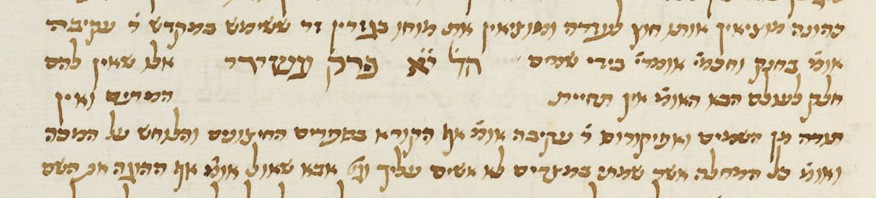 כהונה מוציאין אותו חוץ לעזרה ומוציאין את מוחו בגזרין זר ששימש במקדש ר׳ עקיבה
אומ׳ בחנק וחכמ׳ אומרי׳ בידי שמים הל׳ יא פרק עשירי אלו שאין להם
חלק לעולם הבא האומ׳ אין תחיית המתים ואין
תורה מן השמים ואפיקורוס ר׳ עקיבה אומ׳ אף הקורא בספרים החיצונים והלוחש על המכה
ואומ׳ כל המחלה אשר שמתי במצרים לא אשים עליך וגו׳ אבא שאול אומ׳ אף ההוגה את השם